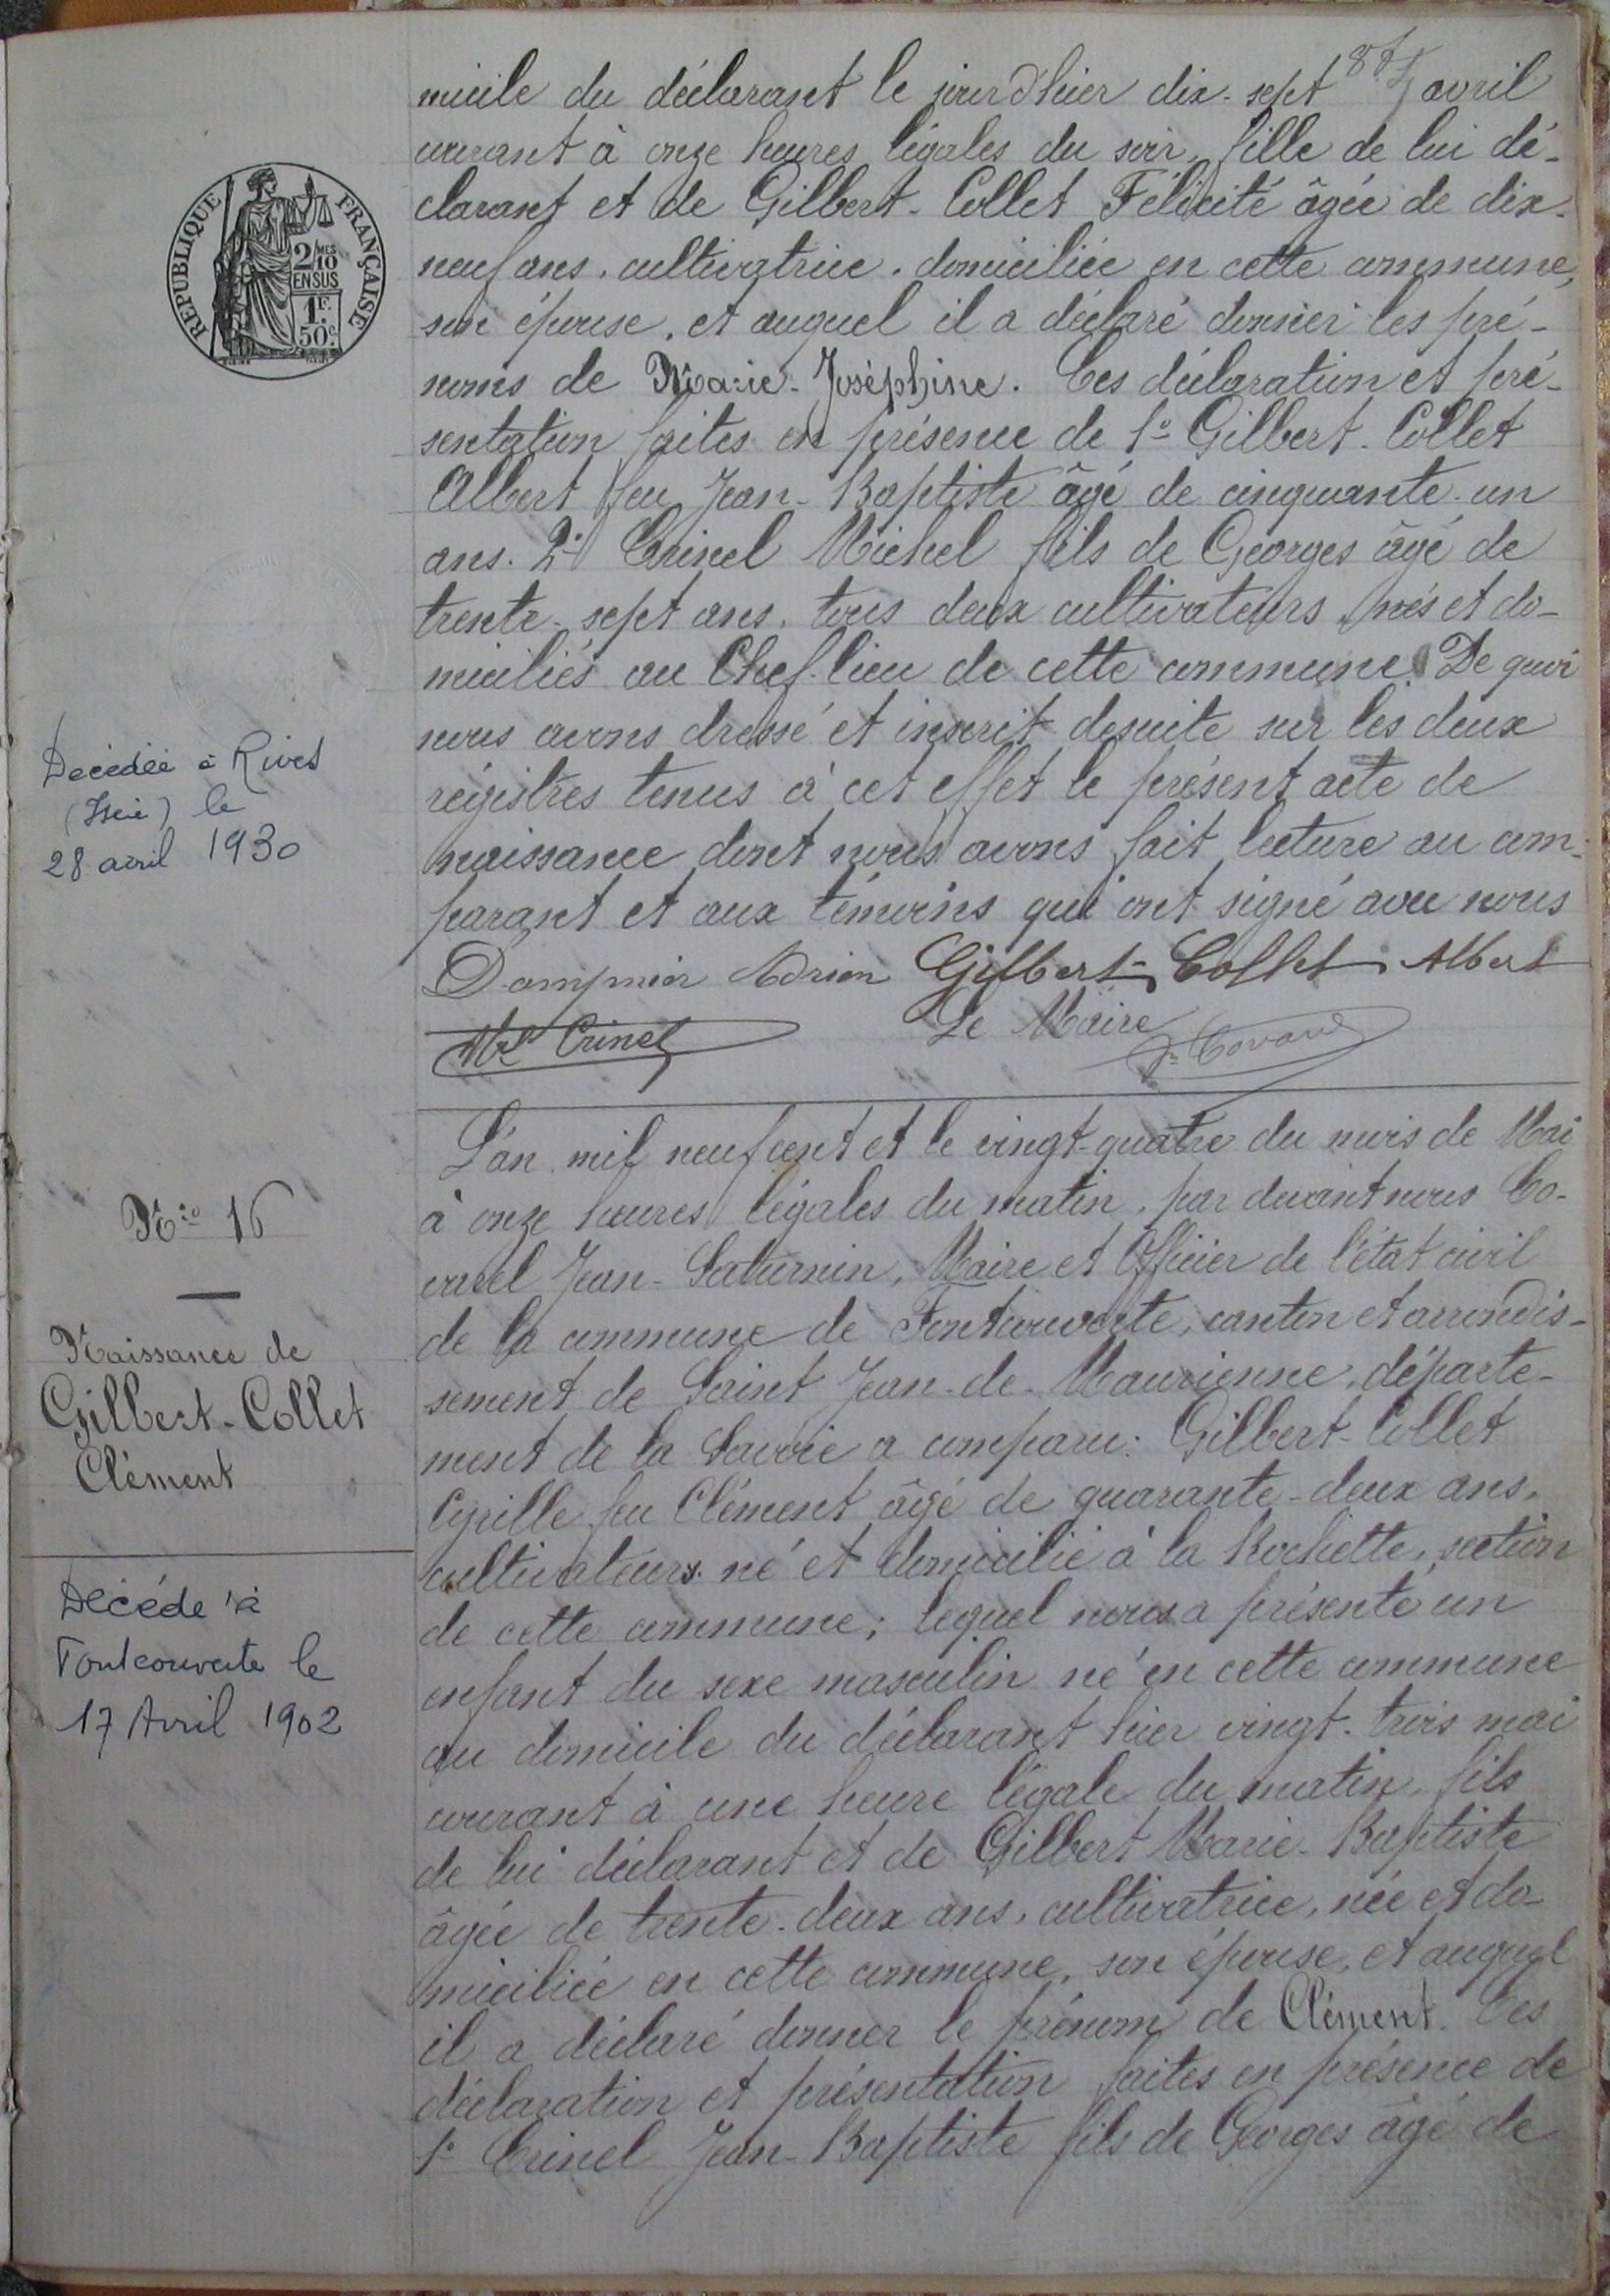 micile du déclarant le jour d'hier dix-sept avril
courant à onze heures légales du soir, fille de lui dé-
clarant et de Gilbert-Collet Félicité âgée de dix-
neuf ans, cultivatrice, domiciliée en cette commune,
son épouse, et auquel il a déclaré donner les pré-
noms de Marie-Joséphine. Ces déclaration et pré-
sentation faites en présence de 1º Gilbert-Collet
Albert feu Jean-Baptiste âgé de cinquante-un
ans. 2º Crinel Michel fils de Georges âgé de
trente-sept ans, tous deux cultivateurs, nés et do-
miciliés au Chef-lieu de cette commune. De quoi
nous avons dressé et inscrit desuite sur les deux
régistres tenus à cet effet le présent acte de
naissance dont nous avons fait lecture au com-
parant et aux témoins qui ont signé avec nous
Dompnier Adrien Gilbert-Collet Albert
Mel Crinel Le Maire
REPUBLIQUE FRANÇAISE
2/10MES
EN SUS
1F.
50c.
Décédée à Rives
(Isère) le
28 avril 1930
Nro 16
Naissance de
Gilbert-Collet
Clément
Décédé à
Fontcouverte le
17 Avril 1902
L'an mil neuf cent et le vingt-quatre du mois de Mai
à onze heures légales du matin, par devant nous Co-
varel Jean-Saturnin, Maire et Officier de l'état civil
de la commune de Fontcouverte, canton et arrondis-
sement de Saint Jean-de-Maurienne, départe-
ment de la Savoie a comparu: Gilbert-Collet
Cyrille feu Clément âgé de quarante-deux ans,
cultivateur, né et domicilié à la Rochette, section
de cette commune; lequel nous a présenté un
enfant du sexe masculin né en cette commune
au domicile du déclarant hier vingt-trois mai
courant à une heure légale du matin, fils
de lui déclarant et de Gilbert Marie-Baptiste
âgée de trente-deux ans, cultivatrice, née et do-
miciliée en cette commune, son épouse, et auquel
il a déclaré donner le prénom de Clément. Ces
déclaration et présentation faites en présence de
1º Crinel Jean-Baptiste fils de Georges âgé de